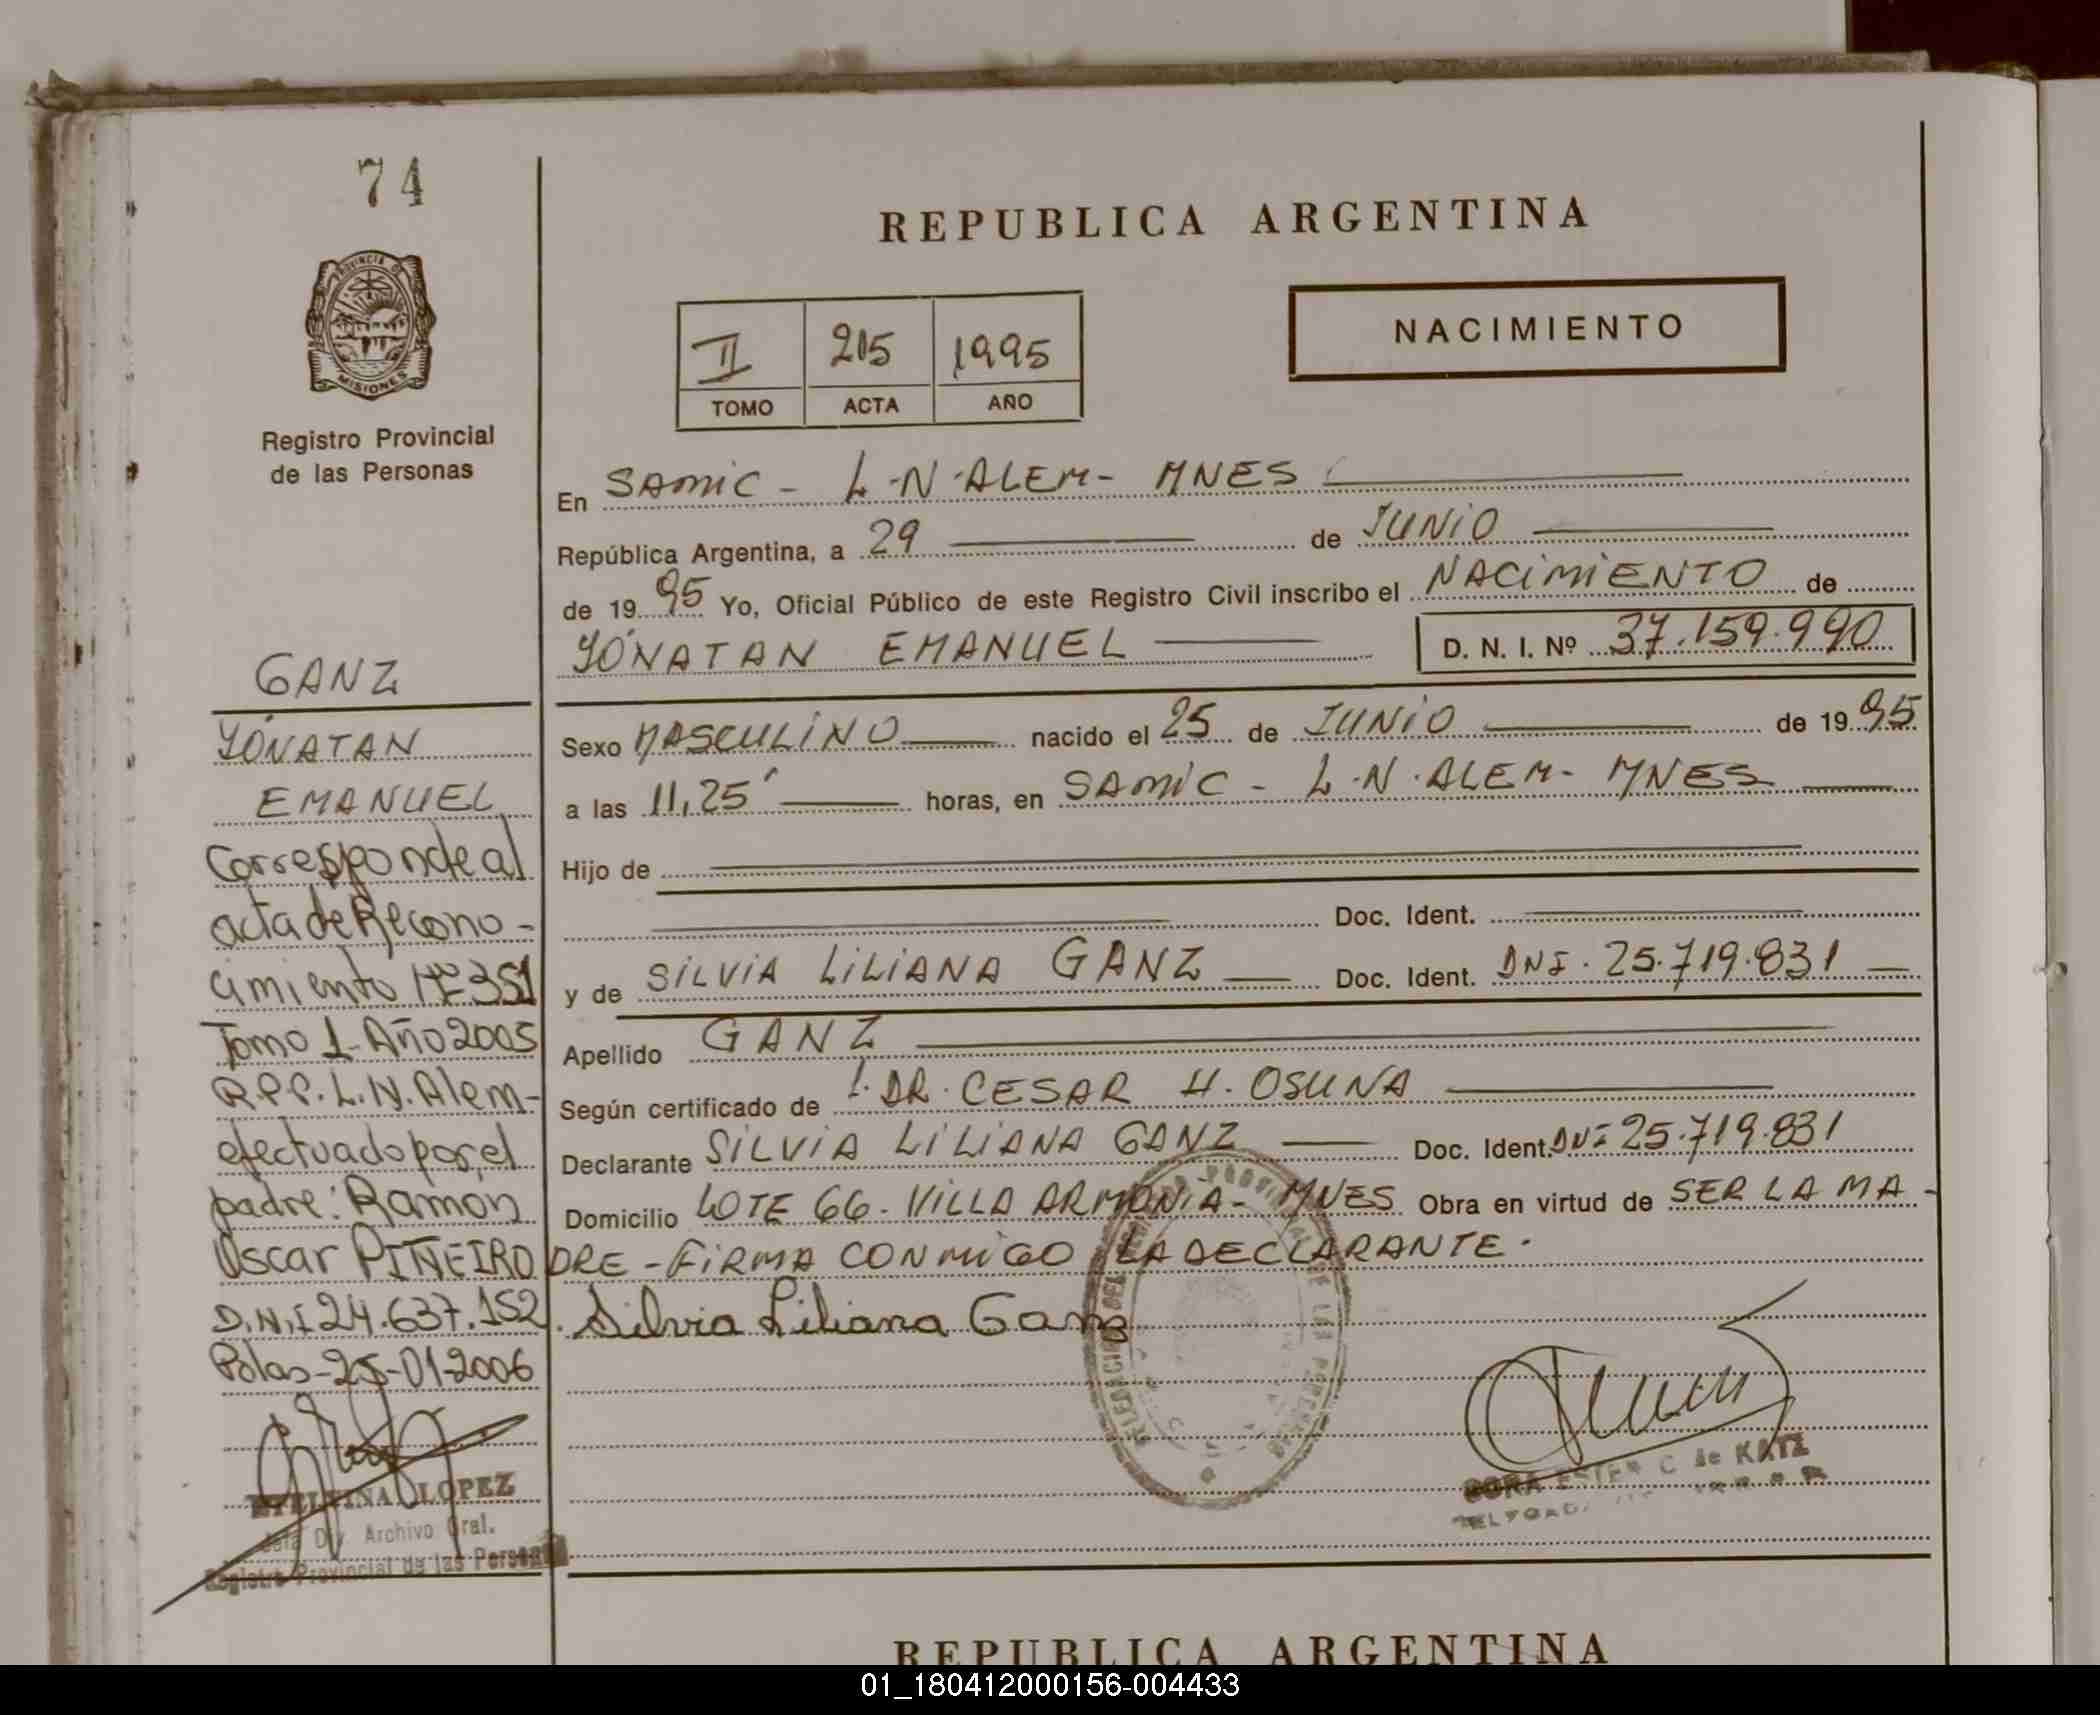 74
PROVINCIA DE
MISIONES
Registro Provincial
de las Personas
REPUBLICA ARGENTINA
II 215 1995
TOMO ACTA AÑO
NACIMIENTO
En SAMIC - L.N.ALEM- MNES
República Argentina, a 29 de JUNIO
de 1995 Yo, Oficial Público de este Registro Civil inscribo el NACIMIENTO de
YÓNATAN EMANUEL D. N. I. Nº 37.159.990
Sexo MASCULINO nacido el 25 de JUNIO de 1995
a las 11,25' horas, en SAMIC - L.N.ALEM- MNES
Hijo de
Doc. Ident.
y de SILVIA LILIANA GANZ Doc. Ident. DNI. 25.719.831
Apellido GANZ
Según certificado de DR. CESAR H. OSUNA
Declarante SILVIA LILIANA GANZ Doc. Ident. DNI 25.719.831
Domicilio LOTE 66- VILLA ARMONIA- MNES Obra en virtud de SER LA MA-
DRE - FIRMA CONMIGO LA DECLARANTE.
Silvia Liliana Ganz
CORA ESTER C de KATZ
GANZ
YÓNATAN
EMANUEL
Corresponde al
acta de Recono-
cimiento Nº 351
Tomo 1- Año 2005
R.P.P. L.N. Alem-
efectuado por el
padre: Ramón
Oscar PIÑEIRO
D.N.I 24.637.152
Pdas-25-01-2006
LOPEZ
Jefa Div. Archivo Gral.
Registro Provincial de las Personas
REPUBLICA ARGENTINA
01_180412000156-004433